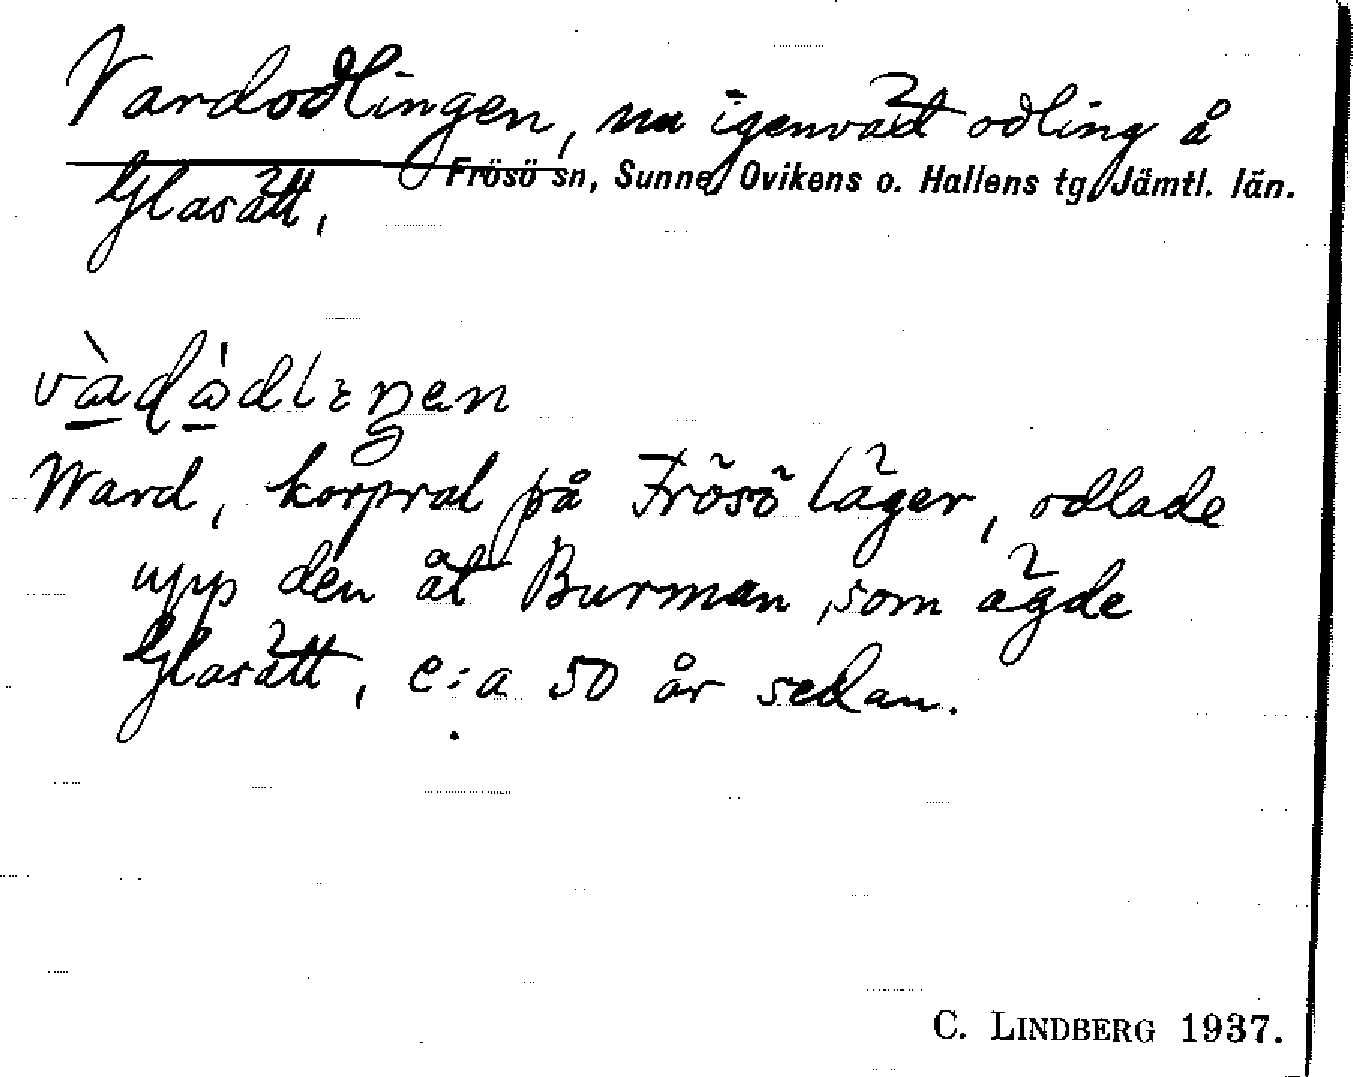 Vardodlingen, nu igenväxt odling å
Frösö sn, Sunne, Ovikens o. Hallens tg, Jämtl. län.
Glasätt.
Ward, korpral på Frösö läger, odlade
upp den åt Burman, som ägde
Glasätt, c:a 50 år sedan.
C. LINDBERG 1937.